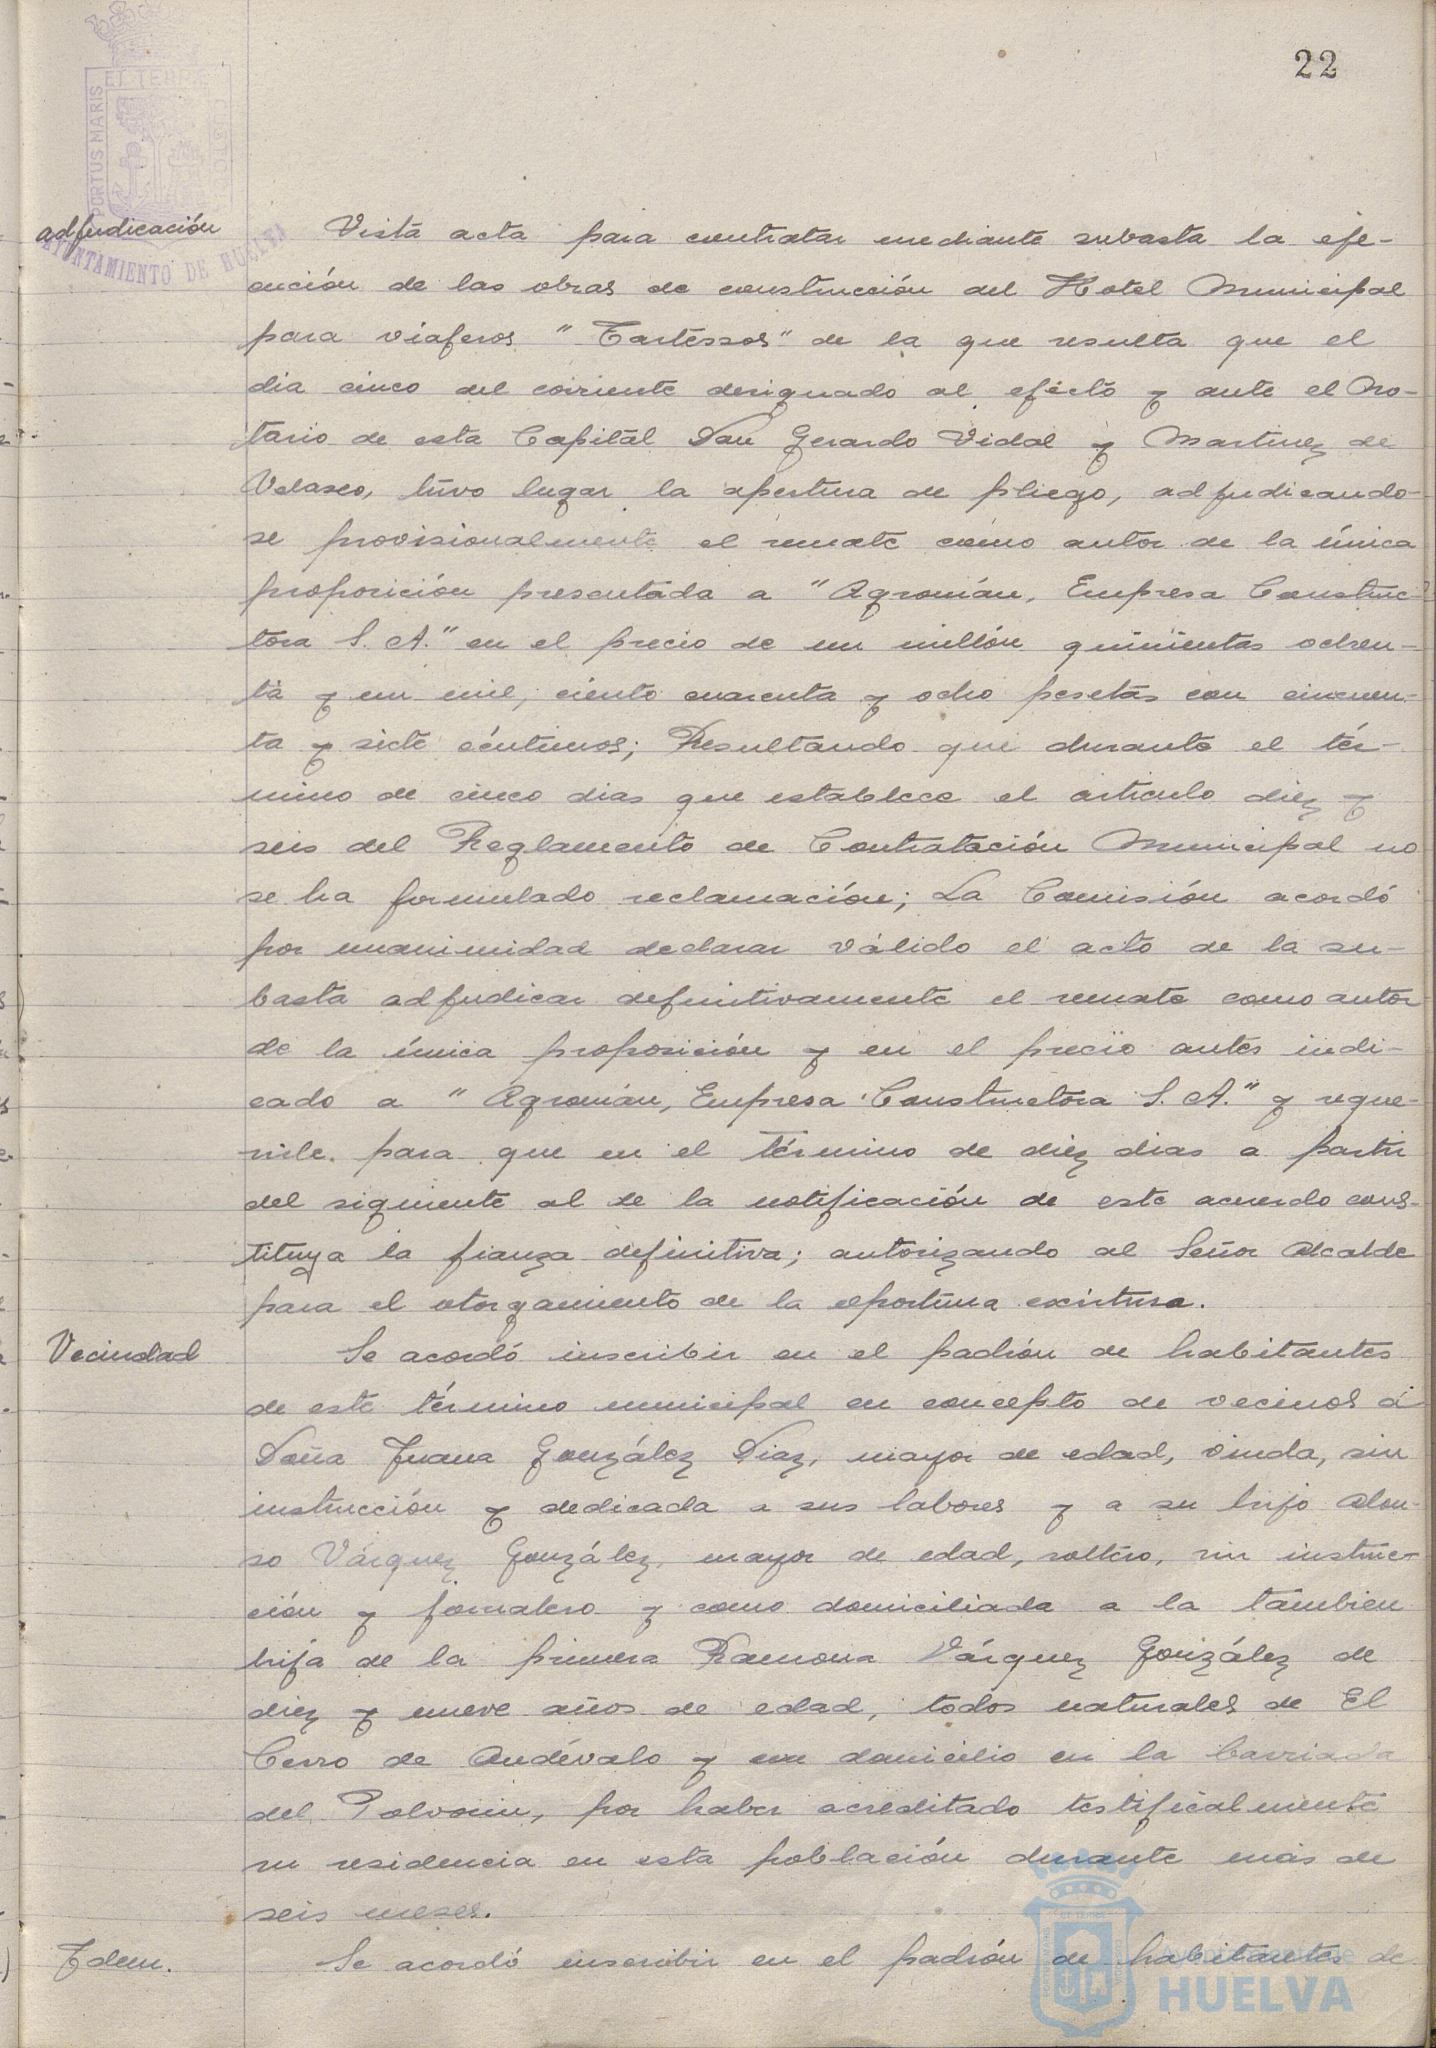 22
ET TERRE
PORTUS MARIS
CUSTOD
AYUNTAMIENTO DE HUELVA
adjudicación
Vista acta para contratar mediante subasta la eje-
cución de las obras de construcción del Hotel Municipal
para viajeros "Tartéssos" de la que resulta que el
dia cinco del corriente designado al efecto y ante el No-
tario de esta Capital Don Gerardo Vidal y Martinez de
Velasco, túvo lugar la apertura de pliego, adjudicando-
se provisionalmente el remate cómo autor de la única
proposición presentada a "Agromán, Empresa Construc-
tora S. A." en el precio de un millón quinientas ochen-
ta y un mil, ciento cuarenta y ocho pesetas con cincuen-
ta y siete céntimos; Resultando que durante el tér-
mino de cinco dias que establece el articulo diez y
seis del Reglamento de Contratación Municipal no
se ha formulado reclamación; La Comisión acordó
por unanimidad declarar válido el acto de la su-
basta adjudicar definitivamente el remate como autor
de la única proposición y en el precio antes indi-
cado a "Agromán, Empresa Constructora S. A." y reque-
rirle para que en el término de diez dias a partir
del siguiente al de la notificación de este acuerdo cons-
tituya la fianza definitiva; autorizando al Señor Alcalde
para el otorgamiento de la oportuna escritura.
Vecindad
Se acordó inscribir en el padrón de habitantes
de este término municipal en concepto de vecinos á
Doña Juana González Diaz, mayor de edad, viuda, sin
instrucción y dedicada a sus labores y a su hijo Alon-
so Vázquez González, mayor de edad, soltero, sin instruc-
ción y jornalero y como domiciliada a la tambien
hija de la primera Ramona Vázquez González de
diez y nueve años de edad, todos naturales de El
Cerro de Andévalo y con domicilio en la barriada
del Polvorin, por haber acreditado testificalmente
su residencia en esta población durante más de
seis meses.
Idem.
Se acordó inscribir en el padrón de habitantes de
Ayuntamiento de
HUELVA